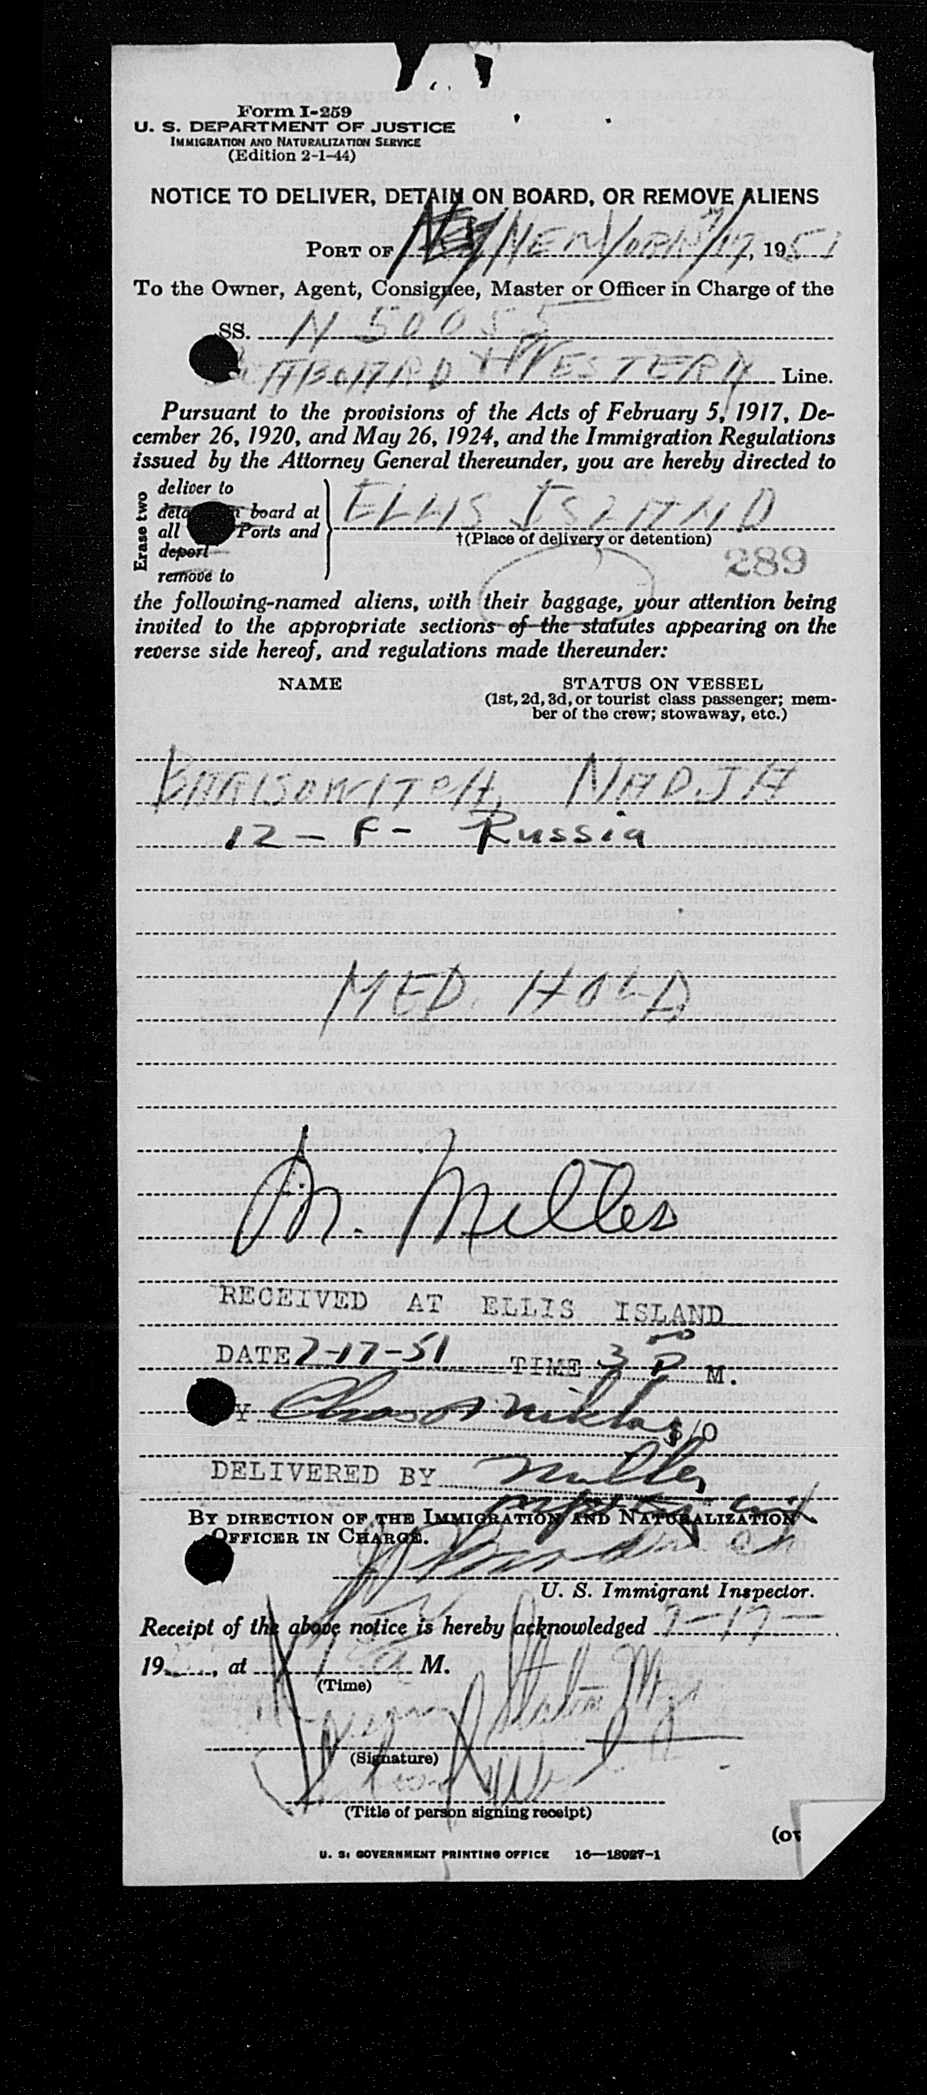 Form I-259
U. S. DEPARTMENT OF JUSTICE
IMMIGRATION AND NATURALIZATION SERVICE
(Edition 2-1-44)
NOTICE TO DELIVER, DETAIN ON BOARD, OR REMOVE ALIENS
PORT OF NEW YORK 7/17, 1951
To the Owner, Agent, Consignee, Master or Officer in Charge of the
SS. N 50055
SEABOARD & WESTERN Line.
Pursuant to the provisions of the Acts of February 5, 1917, De-
cember 26, 1920, and May 26, 1924, and the Immigration Regulations
issued by the Attorney General thereunder, you are hereby directed to
Erase two
deliver to
board at
all Ports and
deport
remove to
ELLIS ISLAND
†(Place of delivery or detention)
289
the following-named aliens, with their baggage, your attention being
invited to the appropriate sections of the statutes appearing on the
reverse side hereof, and regulations made thereunder:
NAME STATUS ON VESSEL
(1st, 2d, 3d, or tourist class passenger; mem-
ber of the crew; stowaway, etc.)
NADJA
12 - F - Russia
MED. HOLD
M. Milles
RECEIVED AT ELLIS ISLAND
DATE 7-17-51 TIME 3 00 P M.
BY Chas S/O
DELIVERED BY
BY DIRECTION OF THE IMMIGRATION AND NATURALIZATION
OFFICER IN CHARGE.
U. S. Immigrant Inspector.
Receipt of the above notice is hereby acknowledged 7-17-
19 , at M.
(Time)
(Signature)
(Title of person signing receipt)
U. S. GOVERNMENT PRINTING OFFICE 16—18927-1